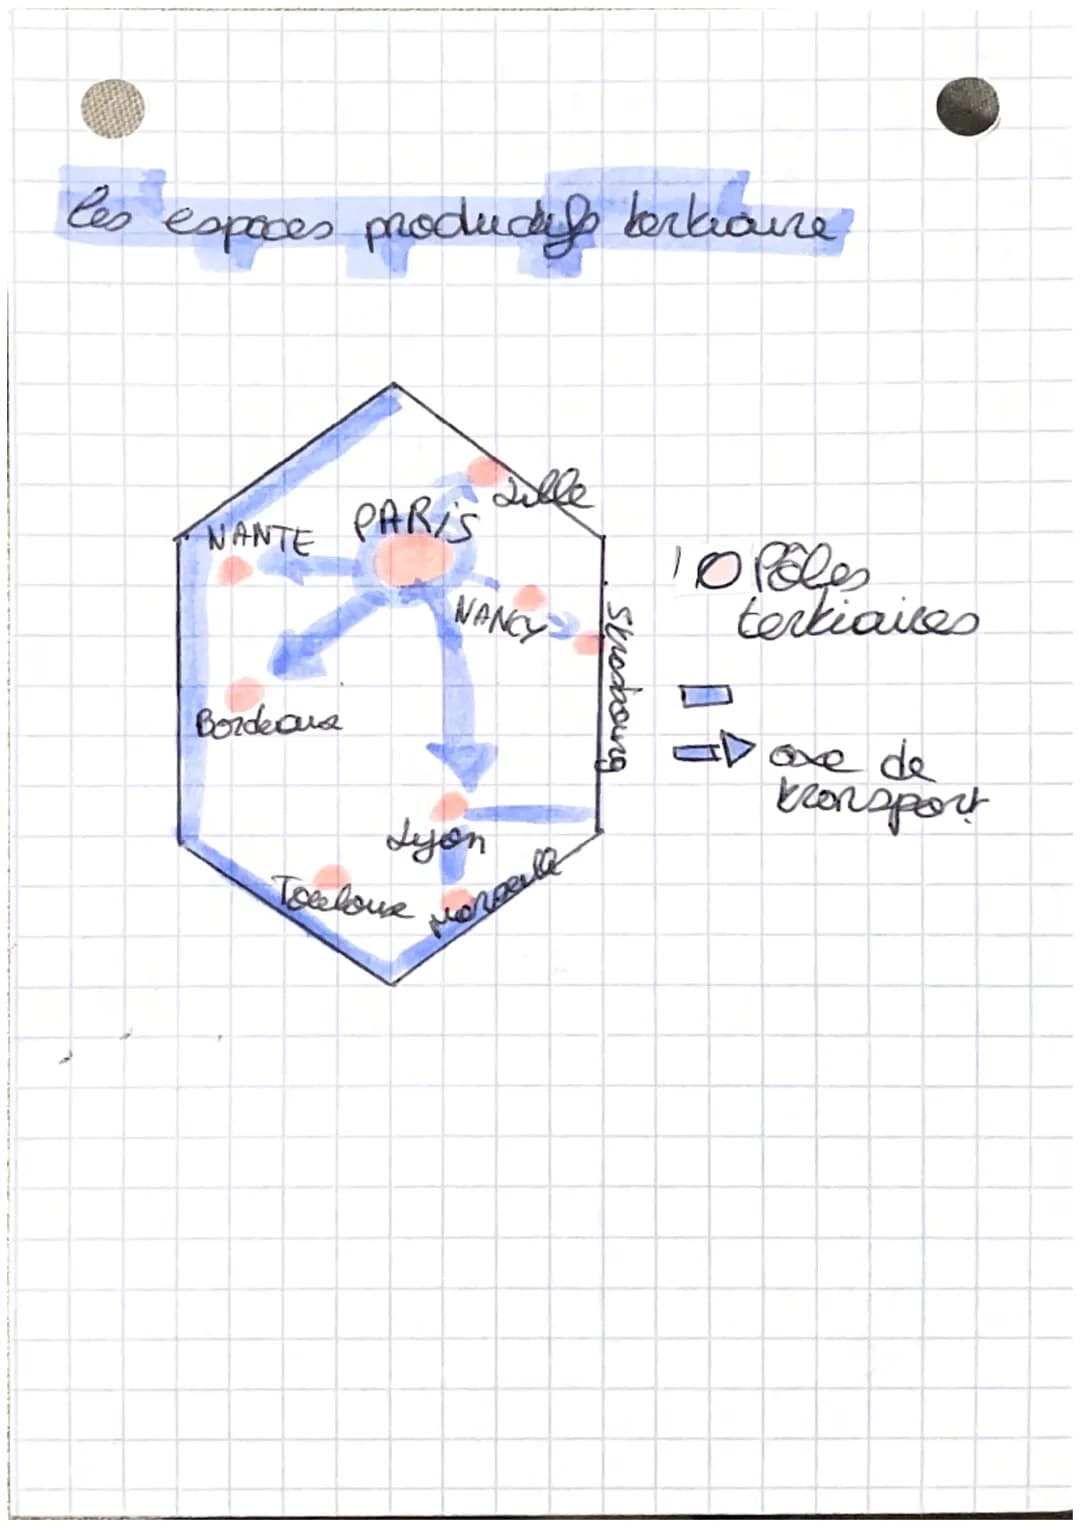 les espaces productifs tertiaire
Lille
PARIS
NANTE
NANCY
Strasbourg
Bordeaux
Lyon
Toulouse
Marseille
1 Pôles
tertiaires
axe de
transport